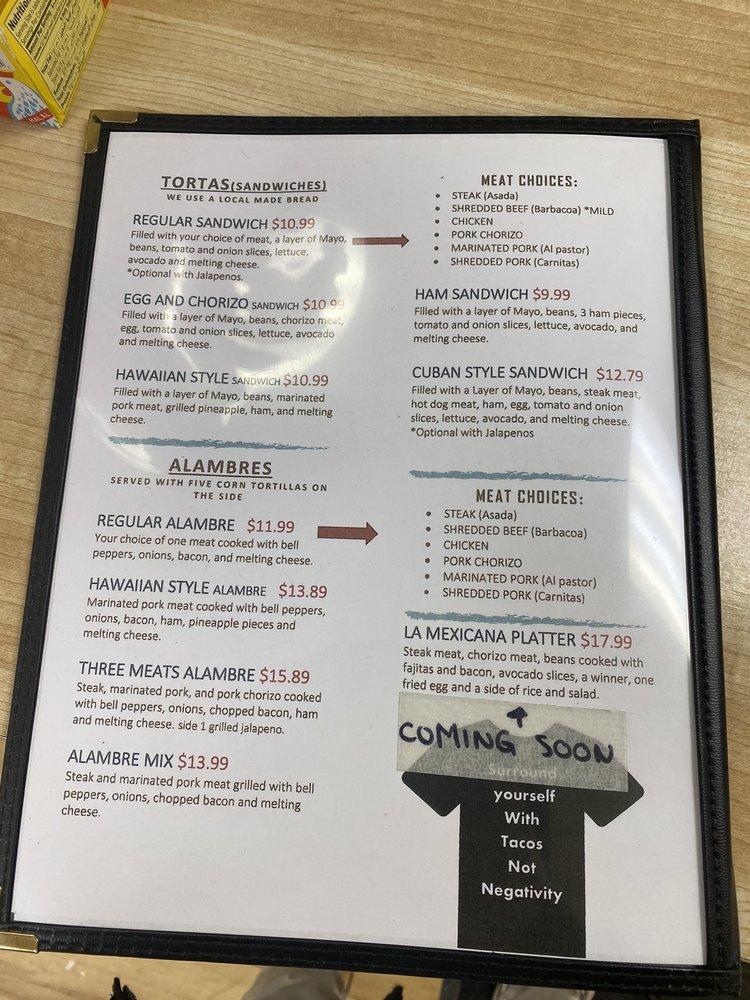 Nutrition
HALAL
TORTAS(SANDWICHES)
WE USE A LOCAL MADE BREAD
REGULAR SANDWICH $10.99
Filled with your choice of meat, a layer of Mayo,
beans, tomato and onion slices, lettuce,
avocado and melting cheese.
*Optional with Jalapenos.
EGG AND CHORIZO SANDWICH $10.99
Filled with a layer of Mayo, beans, chorizo meat,
egg, tomato and onion slices, lettuce, avocado
and melting cheese.
HAWAIIAN STYLE SANDWICH $10.99
Filled with a layer of Mayo, beans, marinated
pork meat, grilled pineapple, ham, and melting
cheese.
MEAT CHOICES:
• STEAK (Asada)
• SHREDDED BEEF (Barbacoa) *MILD
• CHICKEN
• PORK CHORIZO
• MARINATED PORK (Al pastor)
• SHREDDED PORK (Carnitas)
HAM SANDWICH $9.99
Filled with a layer of Mayo, beans, 3 ham pieces,
tomato and onion slices, lettuce, avocado, and
melting cheese.
CUBAN STYLE SANDWICH $12.79
Filled with a Layer of Mayo, beans, steak meat,
hot dog meat, ham, egg, tomato and onion
slices, lettuce, avocado, and melting cheese.
*Optional with Jalapenos
ALAMBRES
SERVED WITH FIVE CORN TORTILLAS ON
THE SIDE
REGULAR ALAMBRE $11.99
Your choice of one meat cooked with bell
peppers, onions, bacon, and melting cheese.
HAWAIIAN STYLE ALAMBRE $13.89
Marinated pork meat cooked with bell peppers,
onions, bacon, ham, pineapple pieces and
melting cheese.
THREE MEATS ALAMBRE $15.89
Steak, marinated pork, and pork chorizo cooked
with bell peppers, onions, chopped bacon, ham
and melting cheese. side 1 grilled jalapeno.
ALAMBRE MIX $13.99
Steak and marinated pork meat grilled with bell
peppers, onions, chopped bacon and melting
cheese.
MEAT CHOICES:
• STEAK (Asada)
• SHREDDED BEEF (Barbacoa)
• CHICKEN
• PORK CHORIZO
• MARINATED PORK (Al pastor)
• SHREDDED PORK (Carnitas)
LA MEXICANA PLATTER $17.99
Steak meat, chorizo meat, beans cooked with
fajitas and bacon, avocado slices, a winner, one
fried egg and a side of rice and salad.
COMING SOON
Surround
yourself
With
Tacos
Not
Negativity